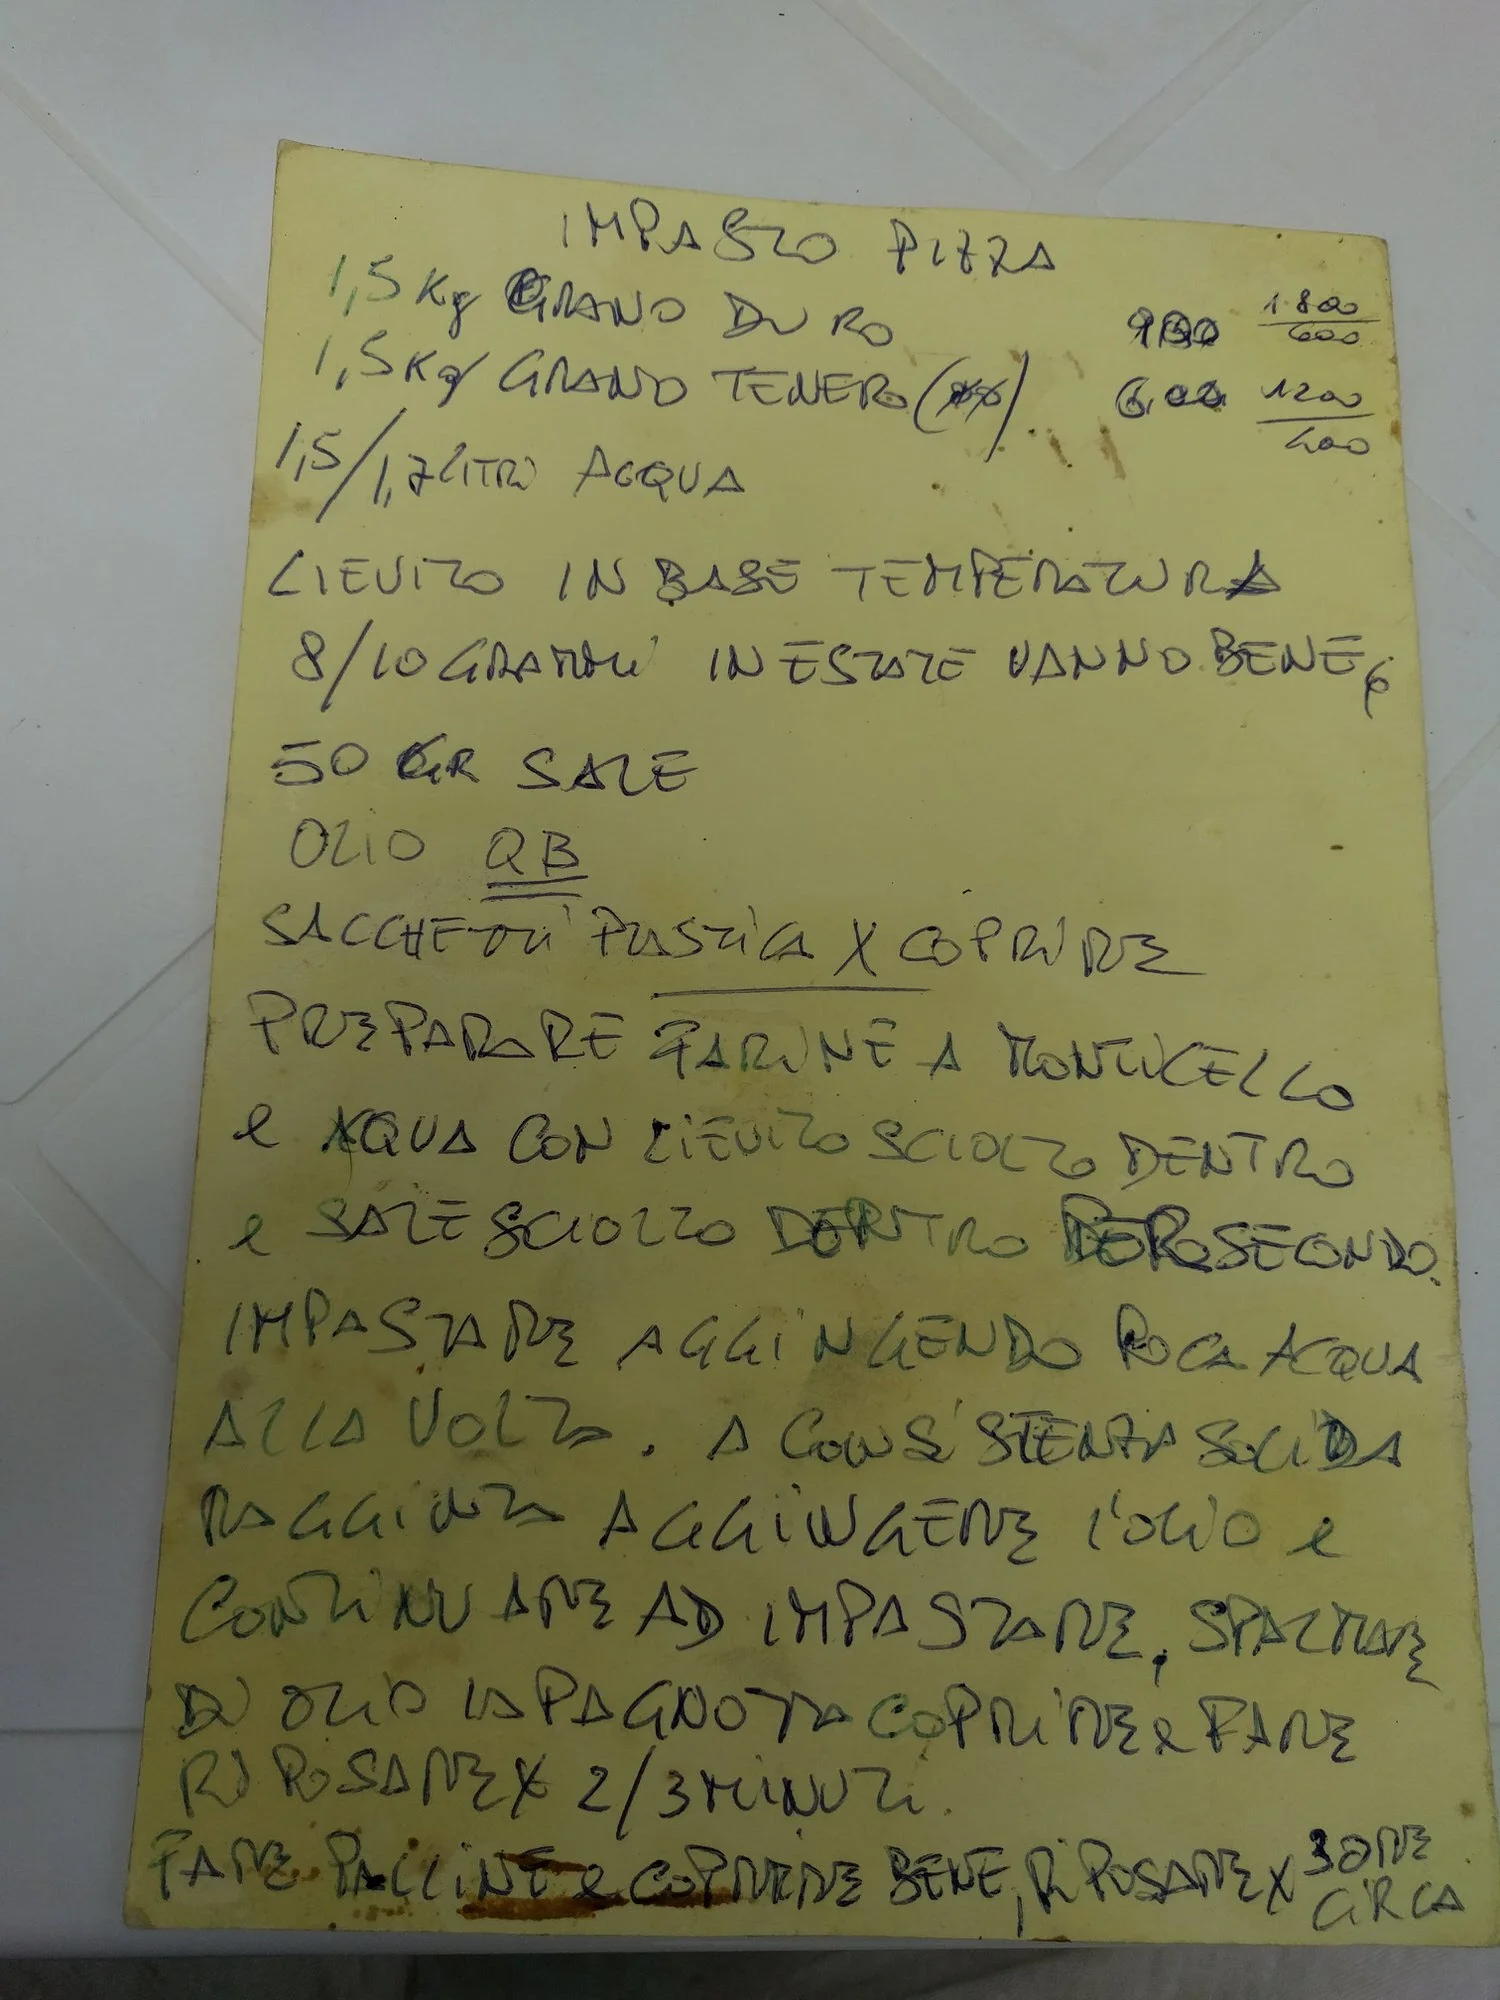 IMPASTO PIZZA
1,5 Kg GRANO DURO 900 1800
600
1,5 Kg GRANO TENERO ( ) 600 1200
400
1,5/1,7 LITRI ACQUA
LIEVITO IN BASE TEMPERATURA
8/10 GRAMMI IN ESTATE VANNO BENE
50 GR SALE
OLIO QB
SACCHETTI PLASTICA X COPRIRE
PREPARARE FARINE A MONTICELLO
e AQUA CON LIEVITO SCIOLTO DENTRO
e SALE SCIOLTO DENTRO SECONDO.
IMPASTARE AGGINGENDO POCA ACQUA
ALLA VOLTA. A CONSISTENZA SOLIDA
RAGGINTA AGGINGERE L'OLIO e
CONTINUARE AD IMPASTARE, SPALMARE
DI OLIO LA PAGNOTTA COPRIRE e FARE
RIPOSARE X 2/3 MINUTI.
FARE PALLINE e COPRIRE BENE, RIPOSARE X 3 ORE
CIRCA